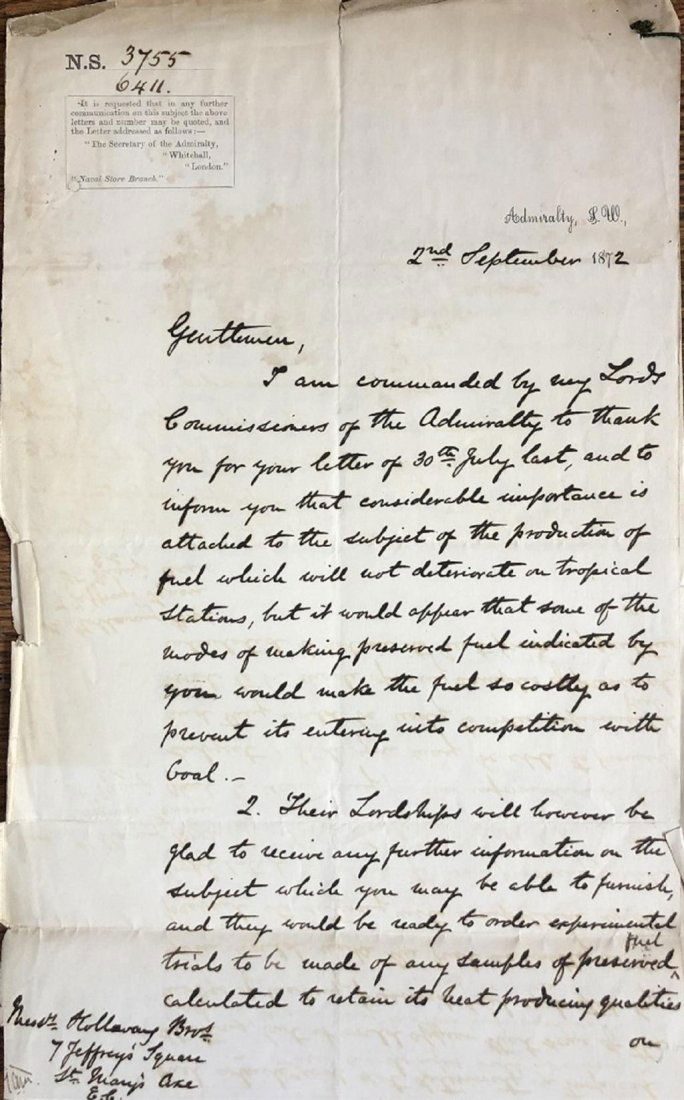 N.S. 3755
6411.
"It is requested that in any further
communication on this subject the above
letters and number may be quoted, and
the Letter addressed as follows:—
"The Secretary of the Admiralty,
"Whitehall,
"London."
"Naval Store Branch."
Admiralty, S.W.,
2nd September 1872
Gentlemen,
I am commanded by my Lords
Commissioners of the Admiralty to thank
you for your letter of 30th July last, and to
inform you that considerable importance is
attached to the subject of the production of
fuel which will not deteriorate on tropical
stations, but it would appear that some of the
modes of making preserved fuel indicated by
you would make the fuel so costly as to
prevent its entering into competition with
Coal.—
2. Their Lordships will however be
glad to receive any further information on the
subject which you may be able to furnish,
and they would be ready to order experimental
fuel
trials to be made of any samples of preserved ^
calculated to retain its heat producing qualities
on
Messrs Hollaway Bros
7 Jeffrey's Square
St. Mary's Axe
E.C.